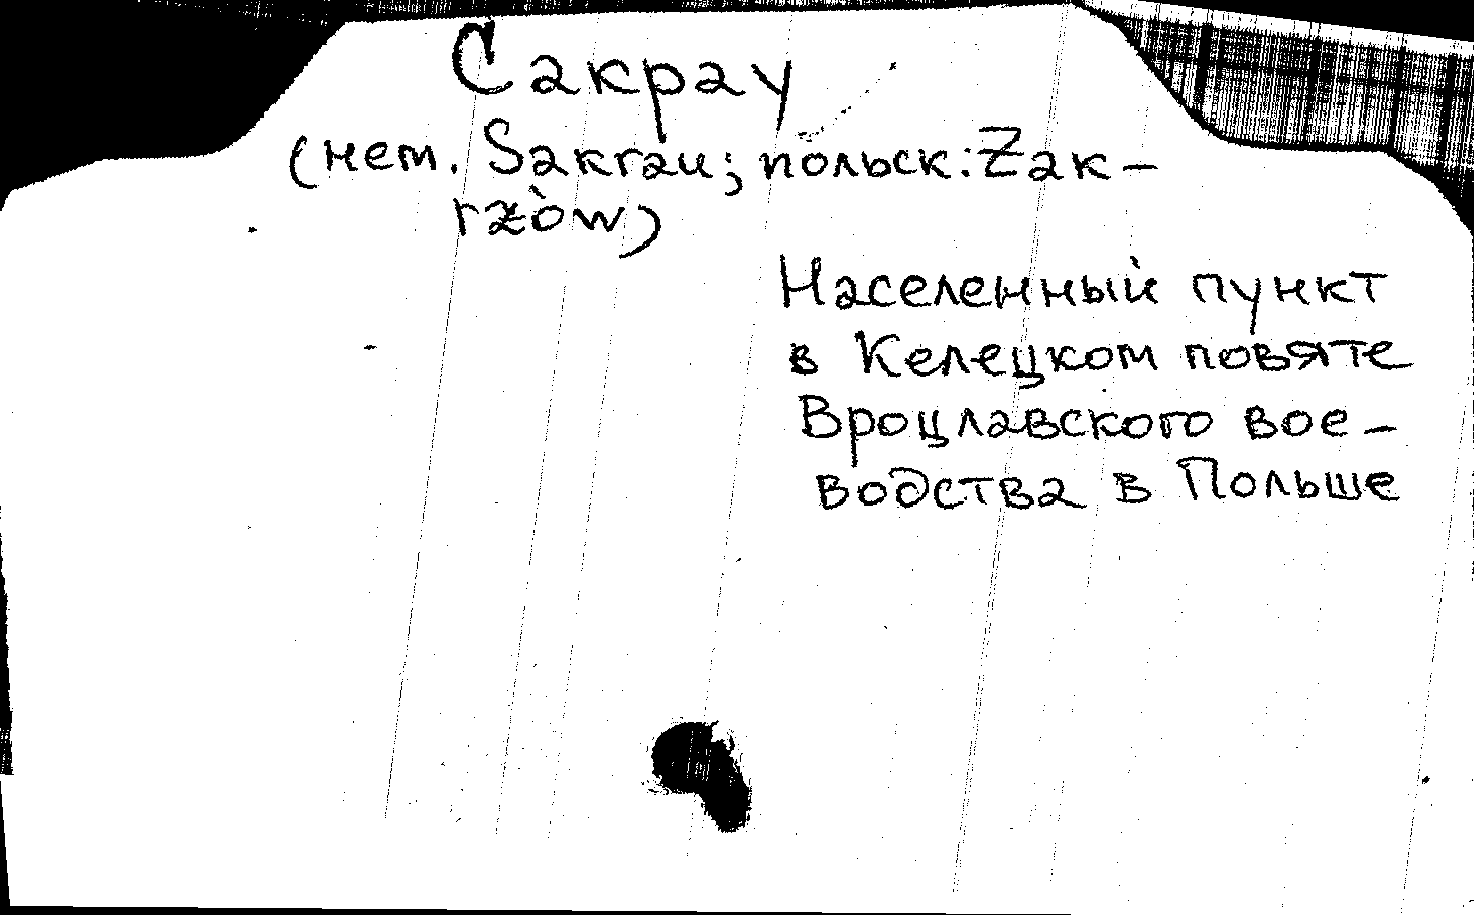 Сакрау
(нем. Sakrau; польск: Zak-
rzòw)
Населенный пункт
в Келецком повяте
Вроцлавского вое-
водства в Польше